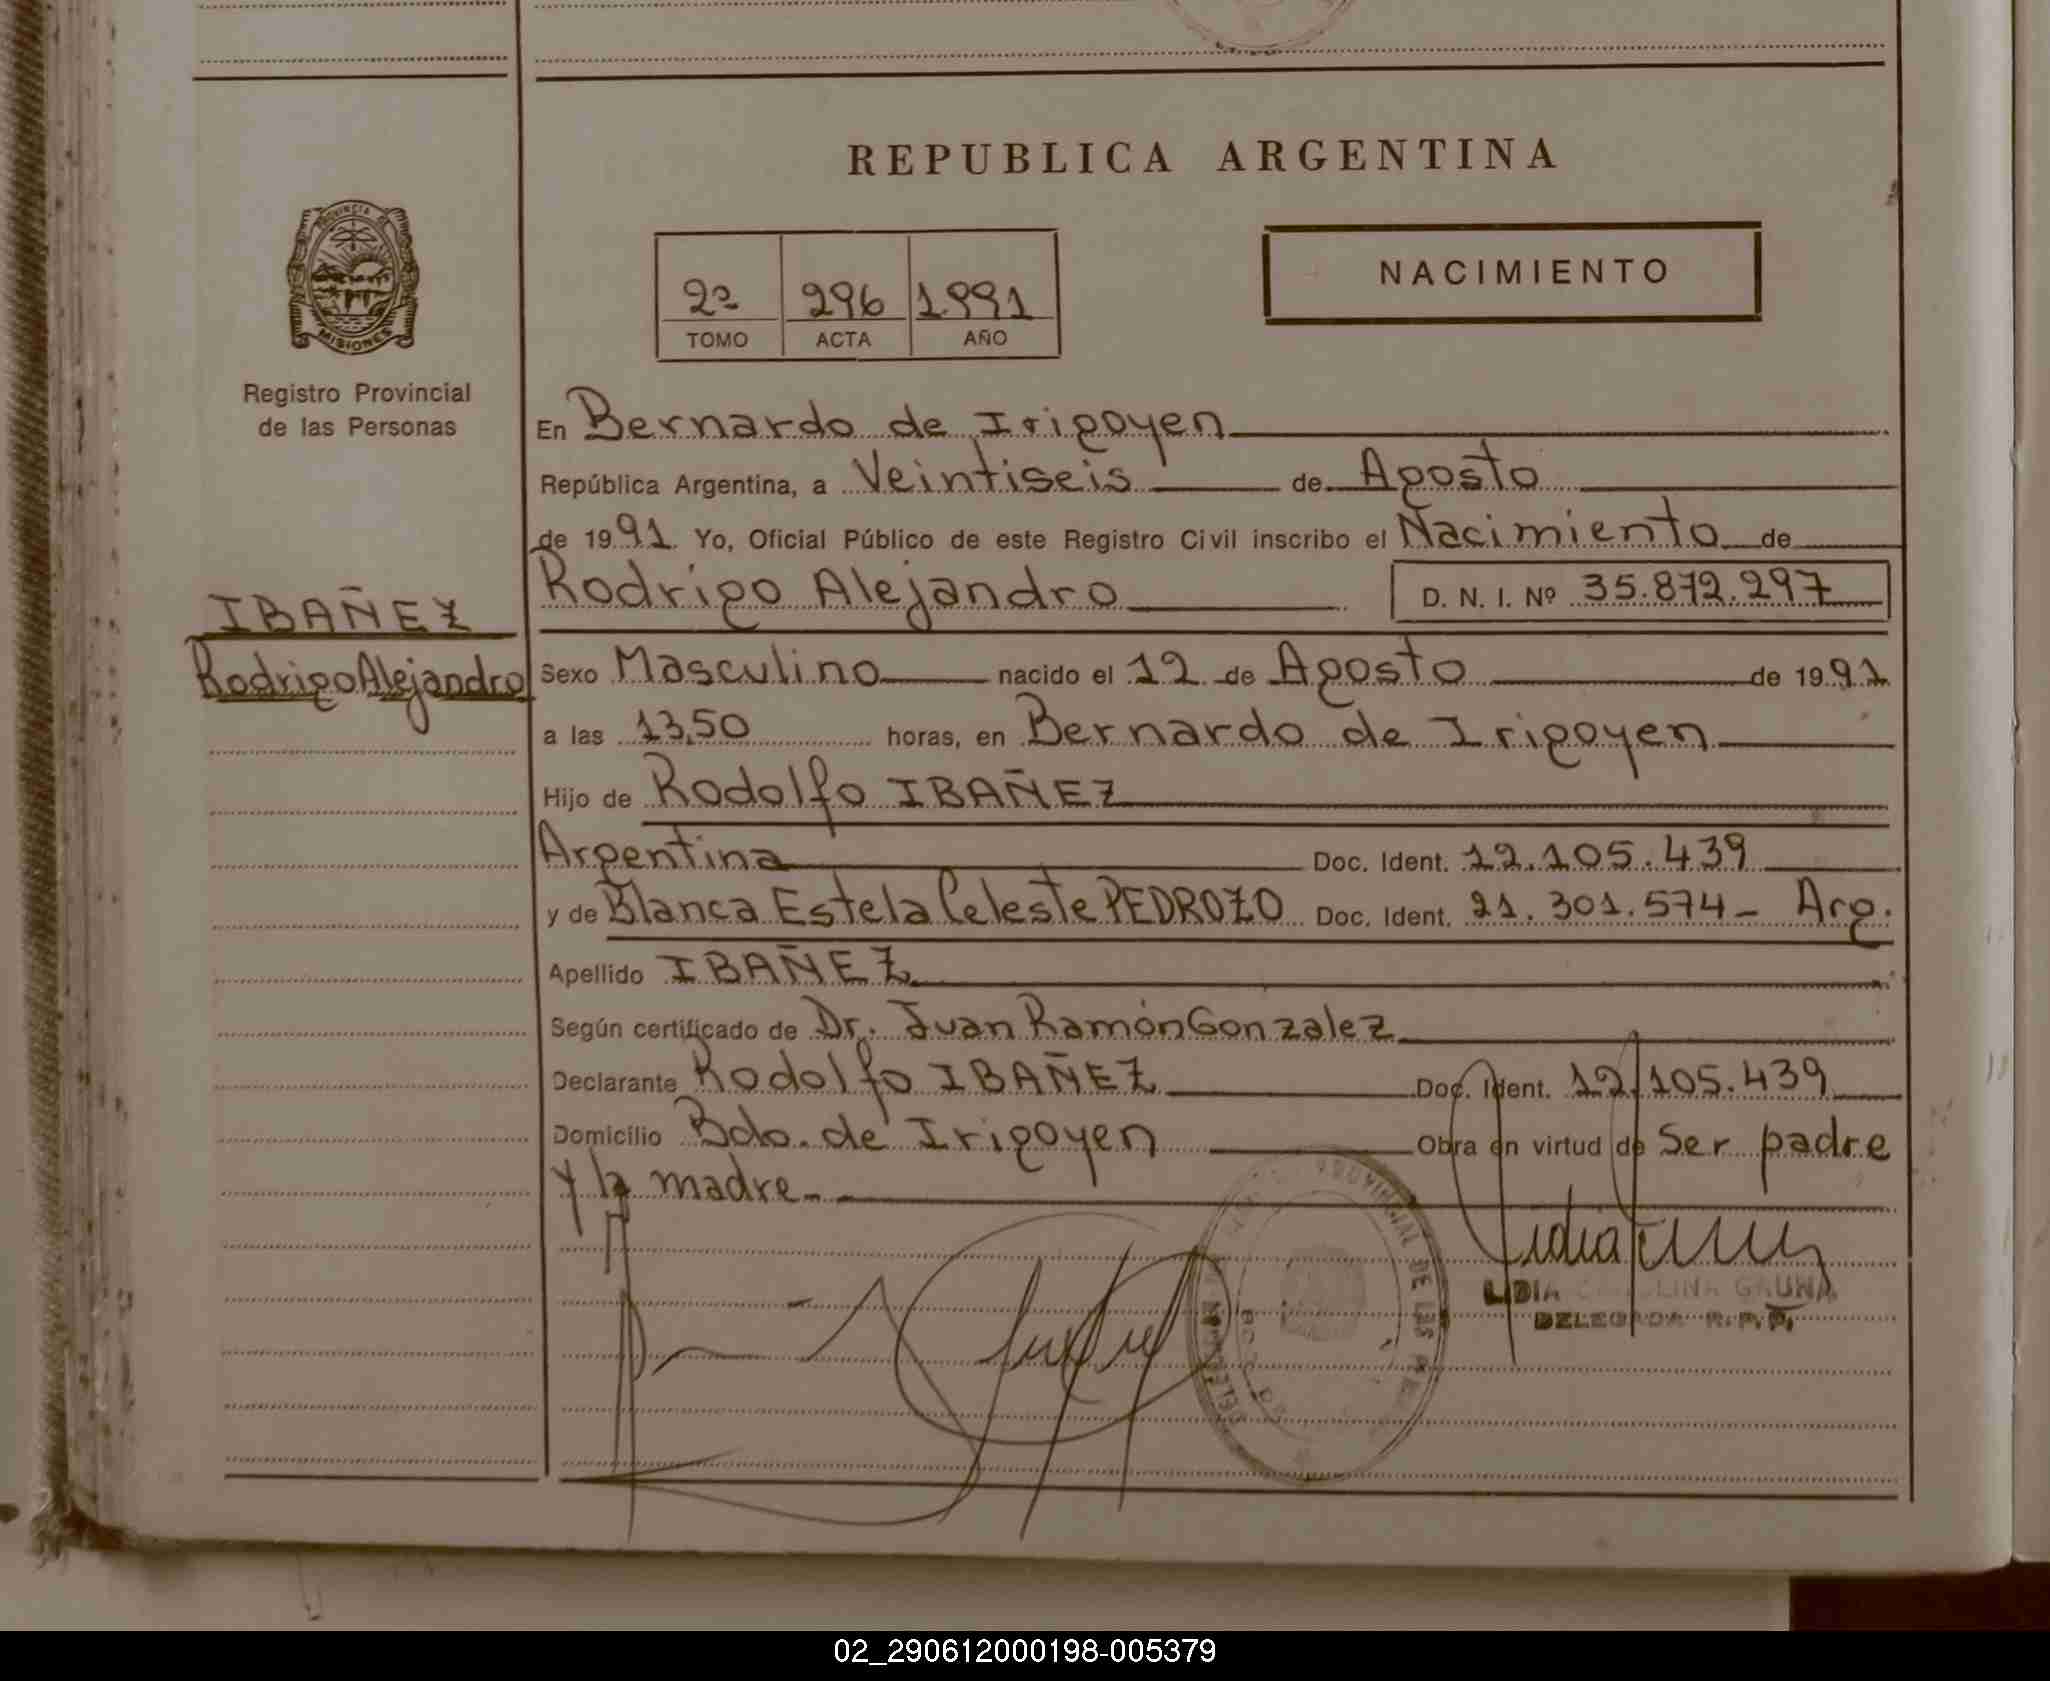 REPUBLICA ARGENTINA
PROVINCIA DE
MISIONES
Registro Provincial
de las Personas
2º 296 1.991
TOMO ACTA AÑO
NACIMIENTO
En Bernardo de Irigoyen
República Argentina, a Veintiseis de Agosto
de 1991 Yo, Oficial Público de este Registro Civil inscribo el Nacimiento de
Rodrigo Alejandro D. N. I. Nº 35.872.297
IBAÑEZ
Rodrigo Alejandro
Sexo Masculino nacido el 12 de Agosto de 1991
a las 13,50 horas, en Bernardo de Irigoyen
Hijo de Rodolfo IBAÑEZ
Argentina Doc. Ident. 12.105.439
y de Blanca Estela Celeste PEDROZO Doc. Ident. 21.301.574- Arg.
Apellido IBAÑEZ
Según certificado de Dr. Juan Ramón Gonzalez
Declarante Rodolfo IBAÑEZ Doc. Ident. 12.105.439
Domicilio Bdo. de Irigoyen Obra en virtud de Ser padre
y la madre-
PROVINCIAL DE LAS
LIDIA GAUNA
DELEGADA R.P.P.
02_290612000198-005379